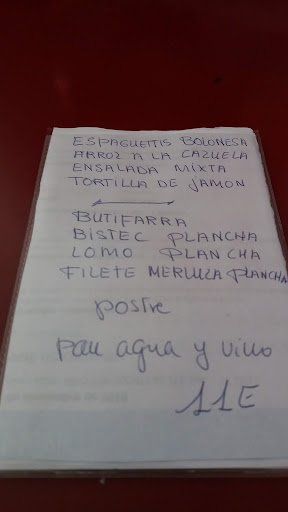 ESPAGUETTIS BOLONESA
ARROZ A LA CAZUELA
ENSALADA MIXTA
TORTILLA DE JAMON
BUTIFARRA
BISTEC PLANCHA
LOMO PLANCHA
FILETE MERLUZA PLANCHA
postre
pan agua y vino
11E